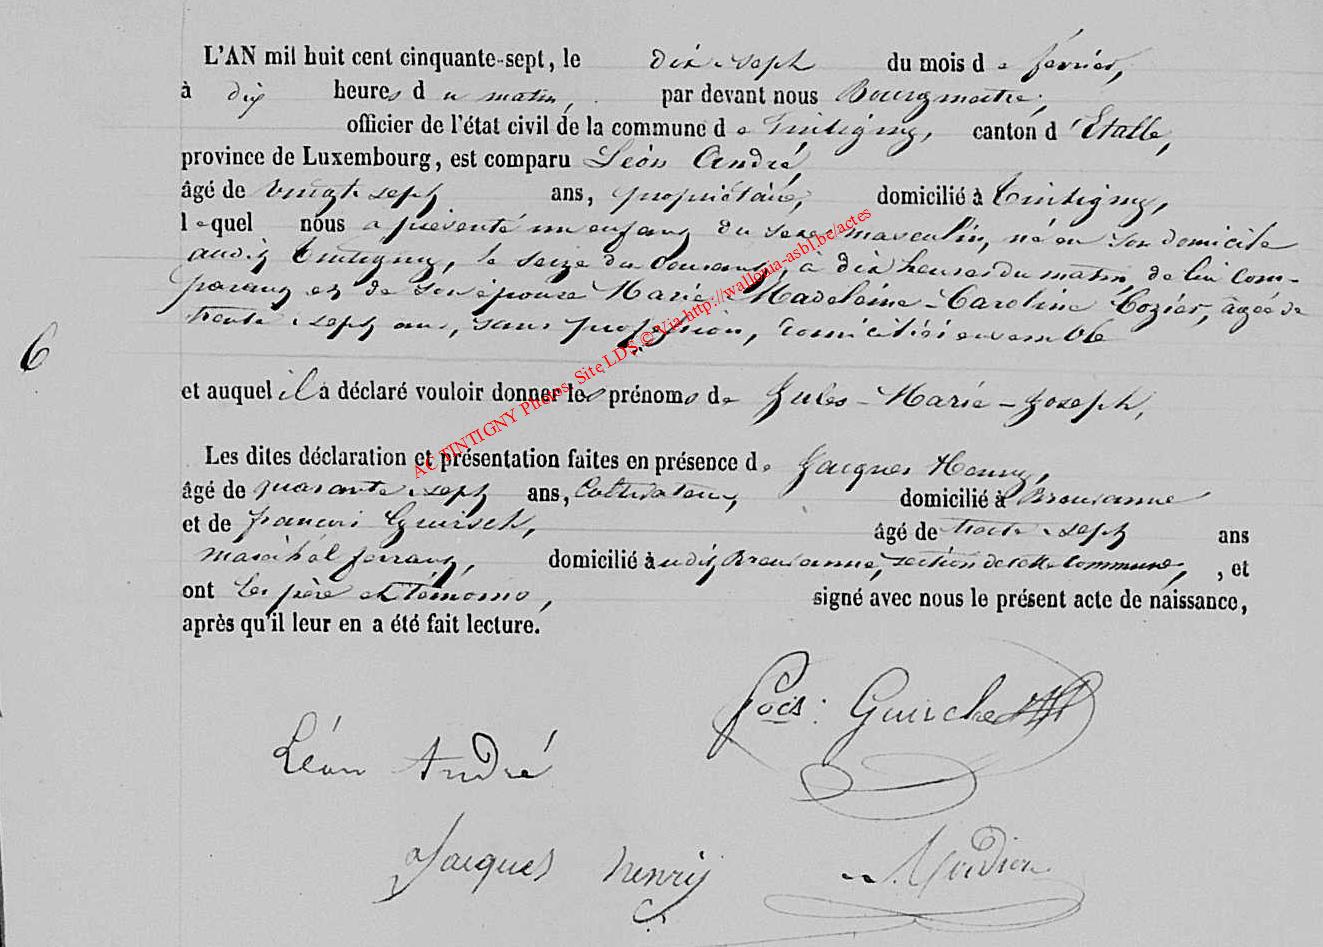 L'AN mil huit cent cinquante-sept, le dix-sept du mois de février,
à dix heures du matin, par devant nous Bourgmestre,
officier de l'état civil de la commune de Tintigny, canton d'Etalle,
province de Luxembourg, est comparu Léon André,
âgé de vingt sept ans, propriétaire, domicilié à Tintigny,
lequel nous a présenté un enfant du sexe masculin, né en son domicile
audit Tintigny, le seize du courant, à dix heures du matin, de lui com-
parant et de son épouse Marie-Madeleine-Caroline Cozier, âgée de
trente-sept ans, sans profession, domiciliés ensemble
6
et auquel il a déclaré vouloir donner les prénoms de Jules-Marie-Joseph,
Les dites déclaration et présentation faites en présence de Jacques Henry,
âgé de quarante-sept ans, Cultivateur, domicilié à Breuvanne
et de François Guirsch, âgé de trente-sept ans
maréchal ferrant, domicilié audit Breuvanne, section de cette commune, , et
ont les père et témoins, signé avec nous le présent acte de naissance,
après qu'il leur en a été fait lecture.
AC TINTIGNY Photos Site LDS © Via http://wallonia-asbl.be/actes
fçois: Guirche
Léon André
Jacques henry